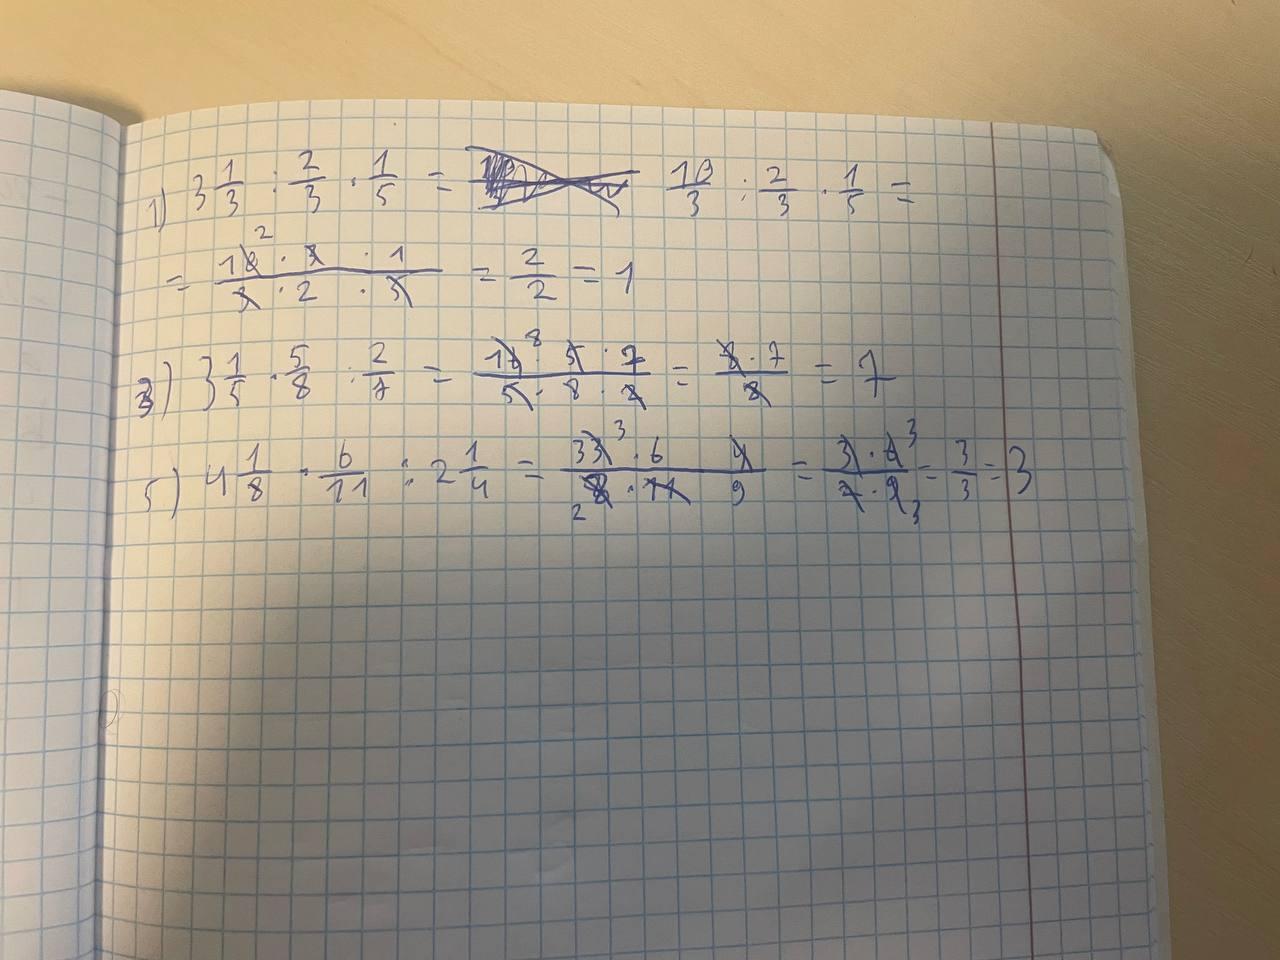 1) 3 1/3 : 2/3 · 1/5 = 10/3 : 2/3 · 1/5 =
= 10² · 3 · 1 / 3 · 2 · 5 = 2/2 = 1
3) 3 1/5 · 5/8 : 2/7 = 16⁸ · 5 · 7 / 5 · 8 · 2 = 8 · 7 / 8 = 7
5) 4 1/8 · 6/11 : 2 1/4 = 33³ · 6 4 / 8₂ · 11 9 = 3 · 6³ / 2 · 9₃ = 3/3 = 3